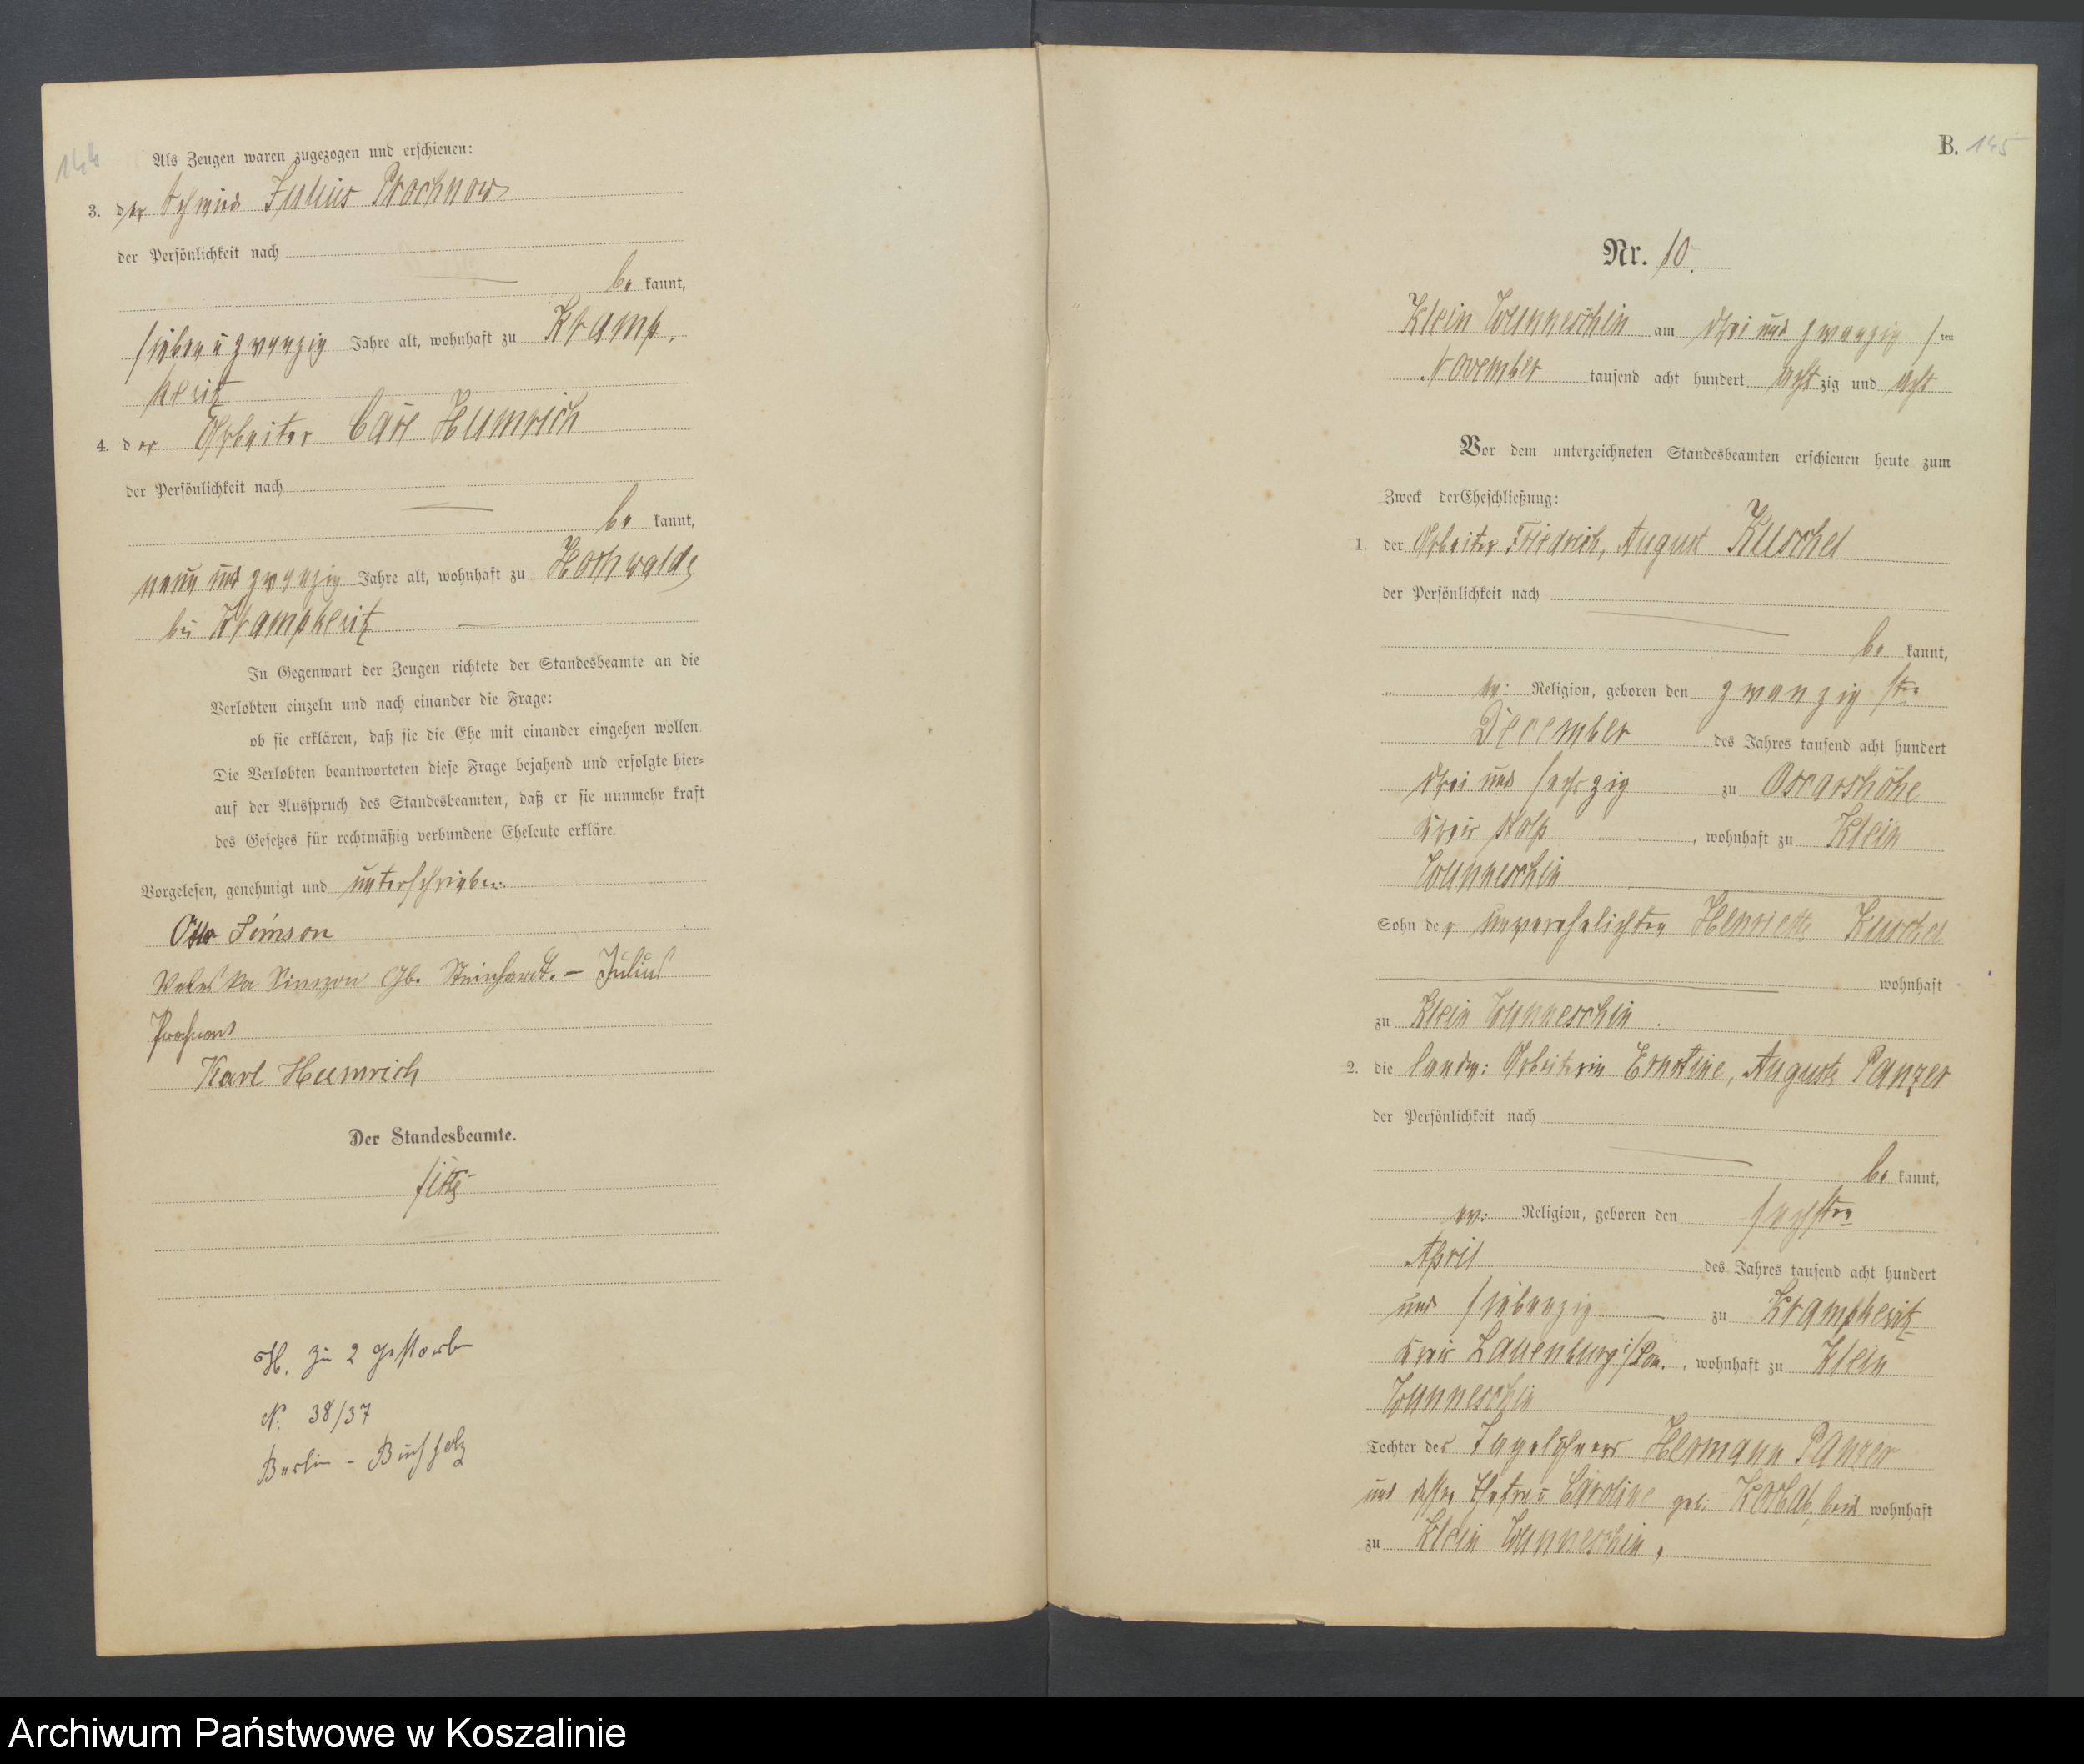 144
Als Zeugen waren zugezogen und erschienen:
3. der Schmied Julius Prochnow
der Persönlichkeit nach
be kannt,
sieben u zwanzig Jahre alt, wohnhaft zu Kramp,
kewitz
4. der Arbeiter Carl Humrich
der Persönlichkeit nach
be kannt,
neun und zwanzig Jahre alt, wohnhaft zu
bei Krampkewitz
In Gegenwart der Zeugen richtete der Standesbeamte an die
Verlobten einzeln und nach einander die Frage:
ob sie erklären, daß sie die Ehe mit einander eingehen wollen.
Die Verlobten beantworteten diese Frage bejahend und erfolgte hier-
auf der Ausspruch des Standesbeamten, daß er sie nunmehr kraft
des Gesetzes für rechtmäßig verbundene Eheleute erkläre.
Vorgelesen, genehmigt und unterschrieben:
Otto Simson
Valeska Simzon Gb. Steinhardt. – Julius
Prochnow
Karl Humrich
Der Standesbeamte.
H. zu 2 gestorben
N. 38/37
Berlin - Buchholz
B. 145
Nr. 10.
Klein Wunneschin am drei und zwanzig sten
November tausend acht hundert acht zig und acht
Vor dem unterzeichneten Standesbeamten erschienen heute zum
Zweck der Eheschließung:
1. der Arbeiter Friedrich, August Kuschel
der Persönlichkeit nach
be kannt,
ev: Religion, geboren den zwanzig sten
December des Jahres tausend acht hundert
drei und sechszig zu Oscarshöhe
Kreis Stolp, wohnhaft zu Klein
Wunneschin
Sohn der unverehelichten Henriette Kuschel
wohnhaft
zu Klein Wunneschin.
2. die landw: Arbeiterin Ernstine, Auguste Panzer
der Persönlichkeit nach
be kannt,
ev: Religion, geboren den sechsten
April des Jahres tausend acht hundert
und siebenzig zu Krampkewitz
Kreis Lauenburg i/Pom., wohnhaft zu Klein
Wunneschin
Tochter des Tagelöhners Hermann Panzer
und dessen Ehefrau Caroline geb: beide wohnhaft
zu Klein Wunneschin.